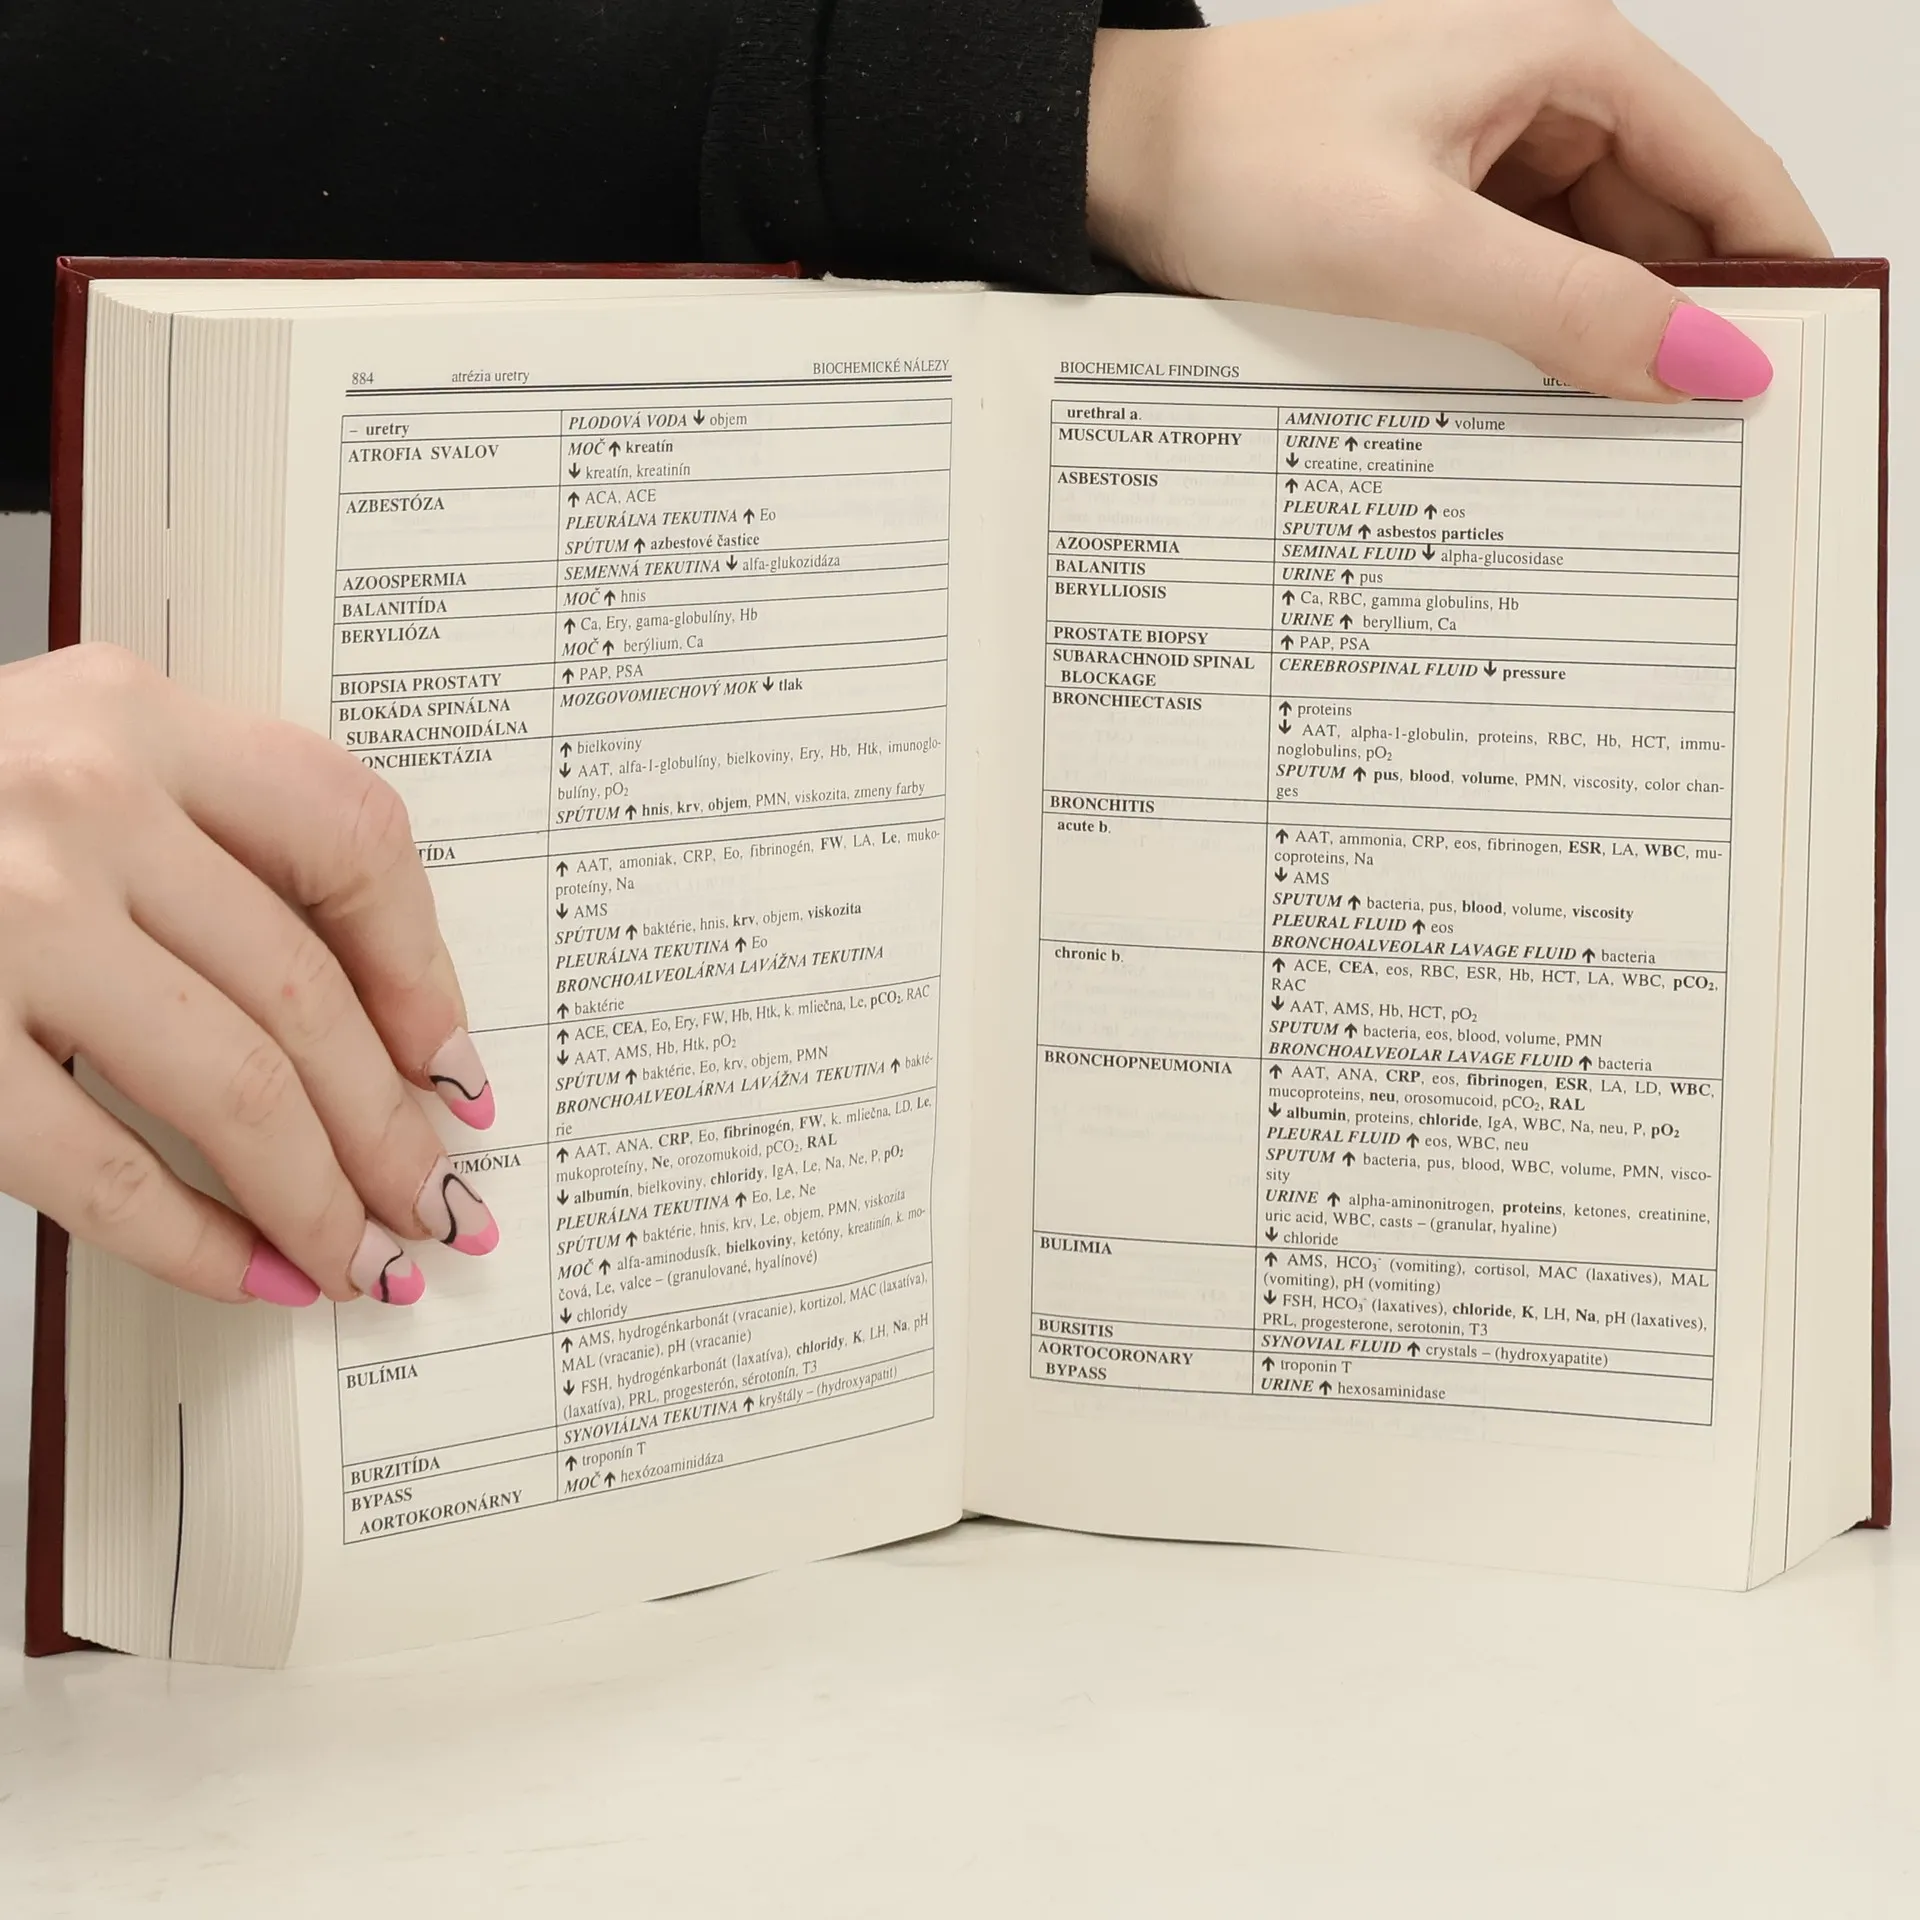 884 atrézia uretry BIOCHEMICKÉ NÁLEZY
– uretry PLODOVÁ VODA ↓ objem
ATROFIA SVALOV MOČ ↑ kreatín
↓ kreatín, kreatinín
AZBESTÓZA ↑ ACA, ACE
PLEURÁLNA TEKUTINA ↑ Eo
SPÚTUM ↑ azbestové častice
AZOOSPERMIA SEMENNÁ TEKUTINA ↓ alfa-glukozidáza
BALANITÍDA MOČ ↑ hnis
BERYLIÓZA ↑ Ca, Ery, gama-globulíny, Hb
MOČ ↑ berýlium, Ca
BIOPSIA PROSTATY ↑ PAP, PSA
BLOKÁDA SPINÁLNA MOZGOVOMIECHOVÝ MOK ↓ tlak
SUBARACHNOIDÁLNA
ONCHIEKTÁZIA ↑ bielkoviny
↓ AAT, alfa-1-globulíny, bielkoviny, Ery, Hb, Htk, imunoglo-
bulíny, pO₂
SPÚTUM ↑ hnis, krv, objem, PMN, viskozita, zmeny farby
TÍDA
↑ AAT, amoniak, CRP, Eo, fibrinogén, FW, LA, Le, muko-
proteíny, Na
↓ AMS
SPÚTUM ↑ baktérie, hnis, krv, objem, viskozita
PLEURÁLNA TEKUTINA ↑ Eo
BRONCHOALVEOLÁRNA LAVÁŽNA TEKUTINA
↑ baktérie
↑ ACE, CEA, Eo, Ery, FW, Hb, Htk, k. mliečna, Le, pCO₂, RAC
↓ AAT, AMS, Hb, Htk, pO₂
SPÚTUM ↑ baktérie, Eo, krv, objem, PMN
BRONCHOALVEOLÁRNA LAVÁŽNA TEKUTINA ↑ bakté-
rie
UMÓNIA ↑ AAT, ANA, CRP, Eo, fibrinogén, FW, k. mliečna, LD, Le,
mukoproteíny, Ne, orozomukoid, pCO₂, RAL
↓ albumín, bielkoviny, chloridy, IgA, Le, Na, Ne, P, pO₂
PLEURÁLNA TEKUTINA ↑ Eo, Le, Ne
SPÚTUM ↑ baktérie, hnis, krv, Le, objem, PMN, viskozita
MOČ ↑ alfa-aminodusík, bielkoviny, ketóny, kreatinín, k. mo-
čová, Le, valce – (granulované, hyalínové)
↓ chloridy
BULÍMIA ↑ AMS, hydrogénkarbonát (vracanie), kortizol, MAC (laxatíva),
MAL (vracanie), pH (vracanie)
↓ FSH, hydrogénkarbonát (laxatíva), chloridy, K, LH, Na, pH
(laxatíva), PRL, progesterón, sérotonín, T3
BURZITÍDA SYNOVIÁLNA TEKUTINA ↑ kryštály – (hydroxyapatit)
BYPASS ↑ troponín T
AORTOKORONÁRNY MOČ ↑ hexózoaminidáza
BIOCHEMICAL FINDINGS
urethral a. AMNIOTIC FLUID ↓ volume
MUSCULAR ATROPHY URINE ↑ creatine
↓ creatine, creatinine
ASBESTOSIS ↑ ACA, ACE
PLEURAL FLUID ↑ eos
SPUTUM ↑ asbestos particles
AZOOSPERMIA SEMINAL FLUID ↓ alpha-glucosidase
BALANITIS URINE ↑ pus
BERYLLIOSIS ↑ Ca, RBC, gamma globulins, Hb
URINE ↑ beryllium, Ca
PROSTATE BIOPSY ↑ PAP, PSA
SUBARACHNOID SPINAL CEREBROSPINAL FLUID ↓ pressure
BLOCKAGE
BRONCHIECTASIS ↑ proteins
↓ AAT, alpha-1-globulin, proteins, RBC, Hb, HCT, immu-
noglobulins, pO₂
SPUTUM ↑ pus, blood, volume, PMN, viscosity, color chan-
ges
BRONCHITIS
acute b. ↑ AAT, ammonia, CRP, eos, fibrinogen, ESR, LA, WBC, mu-
coproteins, Na
↓ AMS
SPUTUM ↑ bacteria, pus, blood, volume, viscosity
PLEURAL FLUID ↑ eos
BRONCHOALVEOLAR LAVAGE FLUID ↑ bacteria
chronic b. ↑ ACE, CEA, eos, RBC, ESR, Hb, HCT, LA, WBC, pCO₂,
RAC
↓ AAT, AMS, Hb, HCT, pO₂
SPUTUM ↑ bacteria, eos, blood, volume, PMN
BRONCHOALVEOLAR LAVAGE FLUID ↑ bacteria
BRONCHOPNEUMONIA ↑ AAT, ANA, CRP, eos, fibrinogen, ESR, LA, LD, WBC,
mucoproteins, neu, orosomucoid, pCO₂, RAL
↓ albumin, proteins, chloride, IgA, WBC, Na, neu, P, pO₂
PLEURAL FLUID ↑ eos, WBC, neu
SPUTUM ↑ bacteria, pus, blood, WBC, volume, PMN, visco-
sity
URINE ↑ alpha-aminonitrogen, proteins, ketones, creatinine,
uric acid, WBC, casts – (granular, hyaline)
↓ chloride
BULIMIA ↑ AMS, HCO₃⁻ (vomiting), cortisol, MAC (laxatives), MAL
(vomiting), pH (vomiting)
↓ FSH, HCO₃⁻ (laxatives), chloride, K, LH, Na, pH (laxatives),
PRL, progesterone, serotonin, T3
BURSITIS SYNOVIAL FLUID ↑ crystals – (hydroxyapatite)
AORTOCORONARY ↑ troponin T
BYPASS URINE ↑ hexosaminidase